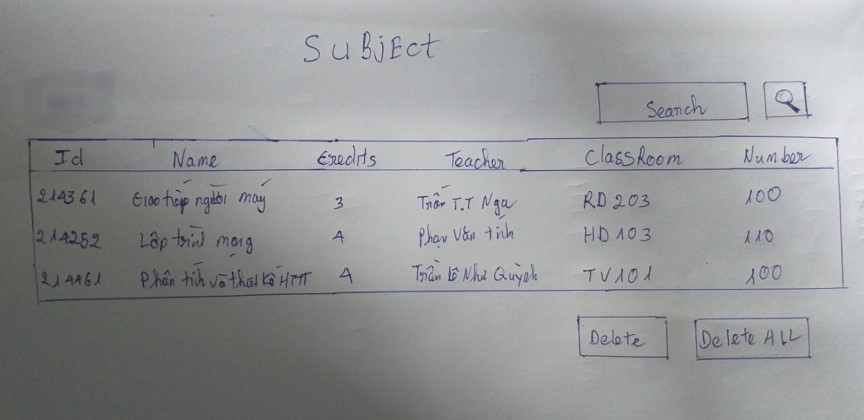 SUBjECt
Search
Id Name Credits Teacher ClassRoom Number
214361 Giao tiếp người máy 3 Trần T.T Nga RD 203 100
214252 Lập trình mạng 4 Phạn Văn tính HD 103 110
214461 Phân tích và thiết kế HTTT 4 Trần Lê Như Quỳnh TV101 100
Delete Delete ALL